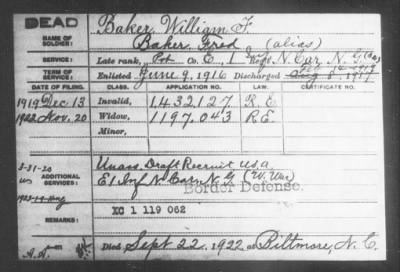 DEAD
Baker, William F.
NAME OF SOLDIER:
Baker, Fred (alias)
SERVICE:
Late rank, Pvt Co. E, 1 Regt N. Car. N. G. (Inf)
TERM OF SERVICE:
Enlisted June 9, 1916 Discharged Aug 8, 1917
DATE OF FILING. CLASS. APPLICATION NO. LAW. CERTIFICATE NO.
1919 Dec 13 Invalid, 1,432,127 R.E.
1922 Nov. 20 Widow, 1197,043 R.E.
Minor,
3-31-20
ADDITIONAL SERVICES:
Unass. Draft Recruit U.S.A.
E1 Inf N. Car. N. G. (W. War)
Border Defense.
REMARKS:
XC 1 119 062
Died Sept 22, 1922 at Biltmore, N. C.